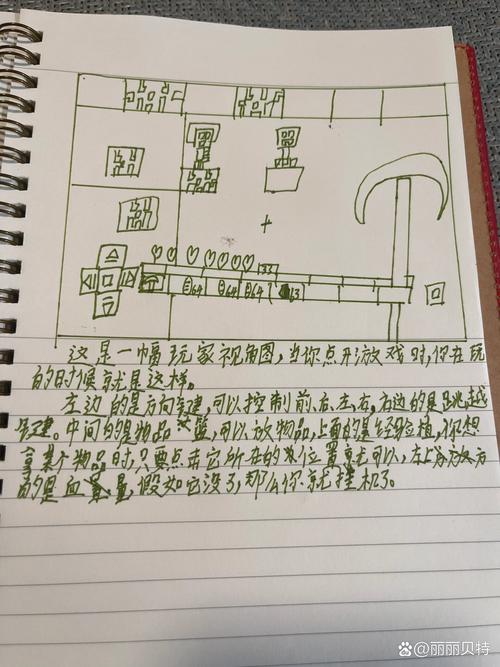 33
64
64
64
13
这是一幅玩家视角图，当你点开游戏时，你在玩
的时候就是这样。
左边的是方向键，可以控制前后左右，右边的是跳越
键。中间的是物品 篮，可以放物品，上面的是经验值，你想
拿某个物品时，只要点击它所在的 位置就可以，左上方
的是血 量，假如它没了，那么你就挂机了。
@丽丽贝特